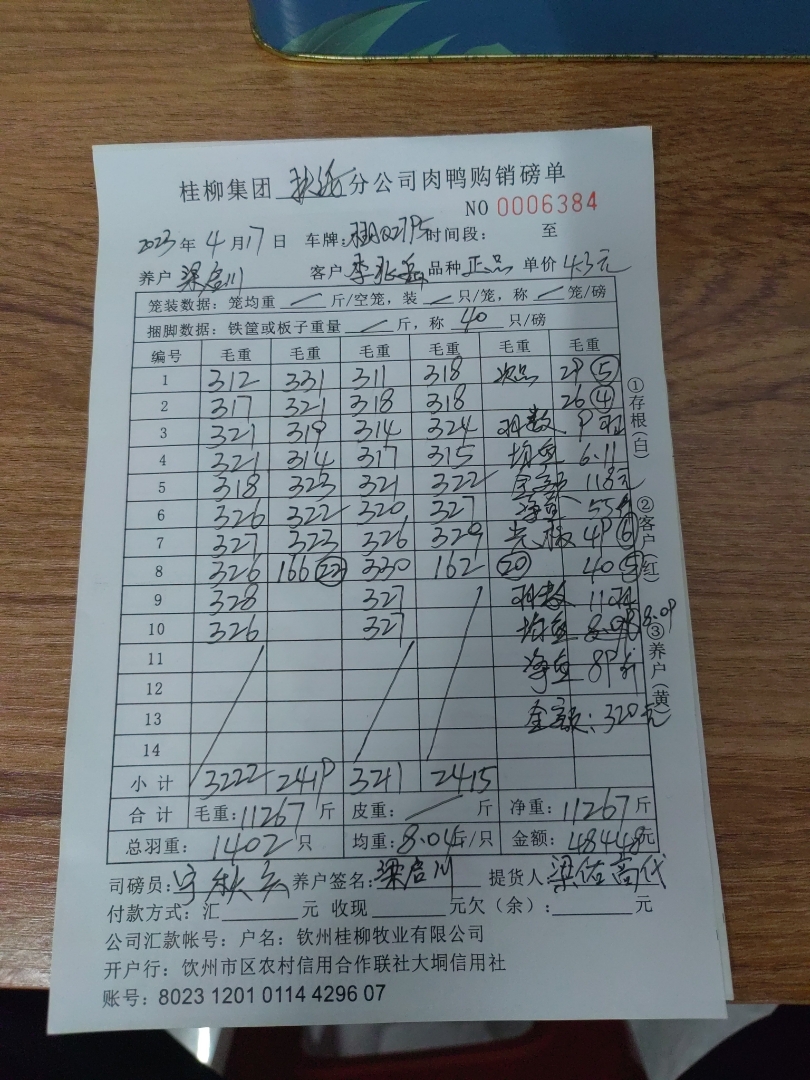 桂柳集团 分公司肉鸭购销磅单
NO 0006384
2023 年 4 月 17 日 车牌: 时间段: 至
养户 梁启川 客户 李兆 品种 正品 单价 4.3元
笼装数据: 笼均重 / 斤/空笼, 装 / 只/笼, 称 / 笼/磅
捆脚数据: 铁筐或板子重量 / 斤, 称 40 只/磅
编号 毛重 毛重 毛重 毛重 毛重 毛重
1 312 331 311 318 次品 29 ⑤
2 317 321 318 318 26 ④
3 321 319 314 324 羽数 9羽
4 321 314 317 315 均重 6.11
5 318 323 321 322 金额 118元
6 326 322 320 327 净重 55斤
7 327 323 326 329 光板 49 ⑥
8 326 166 ㉒ 330 162 ⑳ 40 ⑤
9 328 327 羽数 11羽
10 326 327 均重 8.09
11 净重 89斤
12
13 金额: 320元
14
小计 3222 2419 3211 2415
合计 毛重: 11267 斤 皮重: / 斤 净重: 11267 斤
总羽重: 1402 只 均重: 8.04 斤/只 金额: 48448元
司磅员: 养户签名: 梁启川 提货人: 梁佑高代
付款方式: 汇 元 收现 元欠(余): 元
公司汇款帐号: 户名: 钦州桂柳牧业有限公司
开户行: 钦州市区农村信用合作联社大垌信用社
账号: 8023 1201 0114 4296 07
①存根(白)
②客户(红)
③养户(黄)